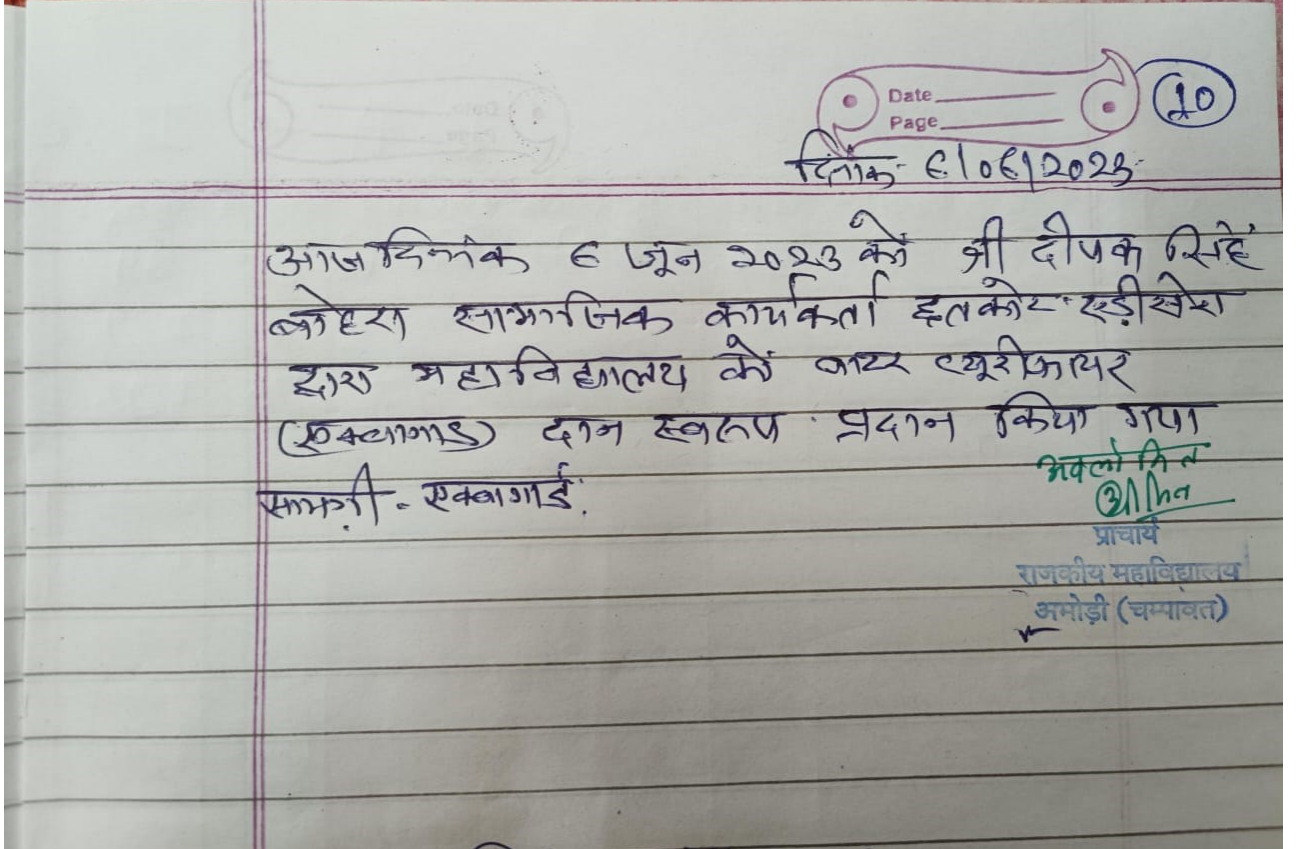 Date
10
Page
दिनांक- 6/06/2023
आज दिनांक 6 जून 2023 को श्री दीपक सिंह
बोहरा सामाजिक कार्यकर्ता
द्वारा महाविद्यालय को वाटर प्यूरीफायर
(एक्वागार्ड) दान स्वरूप प्रदान किया गया
सामग्री - एक्वागार्ड.
अवलोकित
प्राचार्य
राजकीय महाविद्यालय
अमोड़ी (चम्पावत)